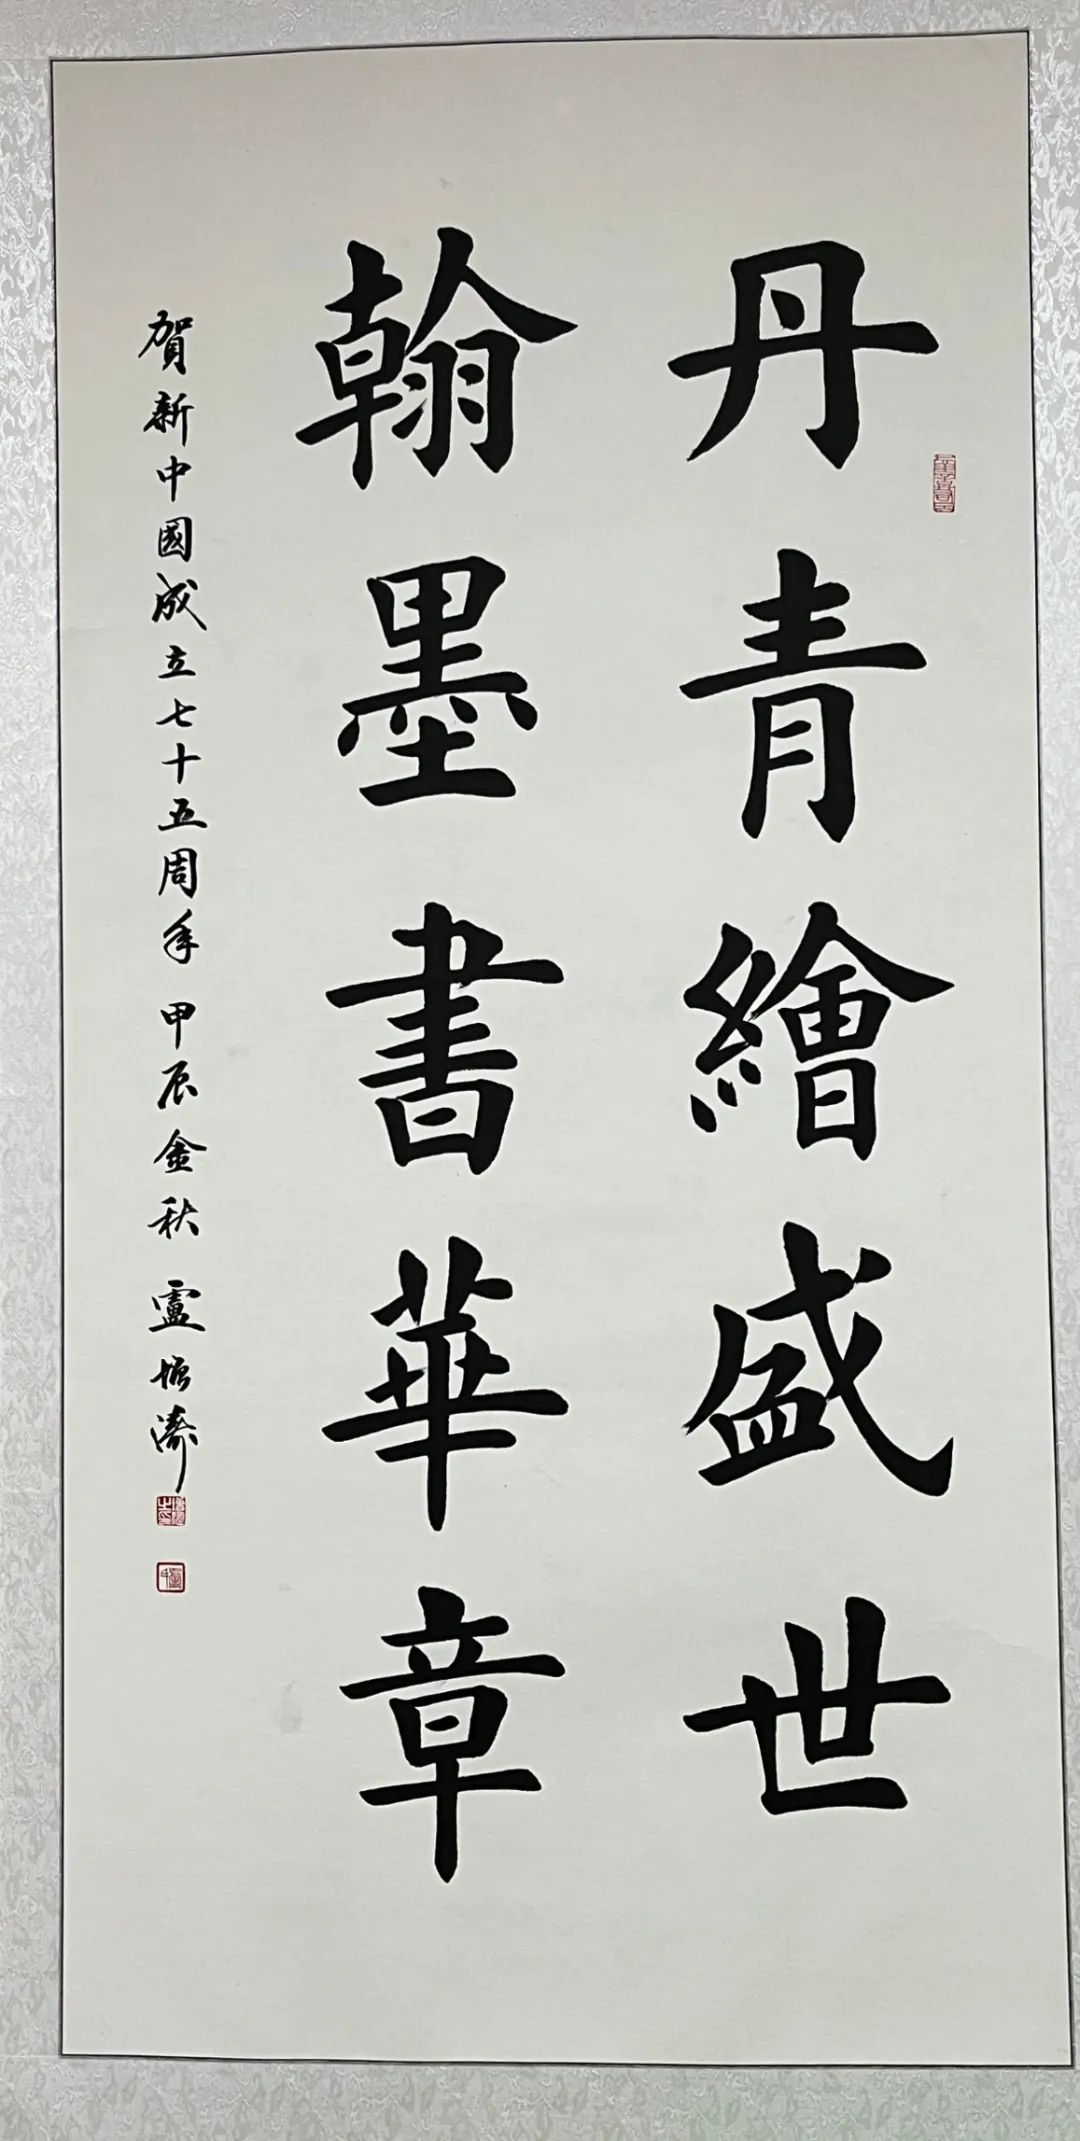 丹青繪盛世
翰墨書華章
賀新中國成立七十五周年 甲辰金秋 盧振濤